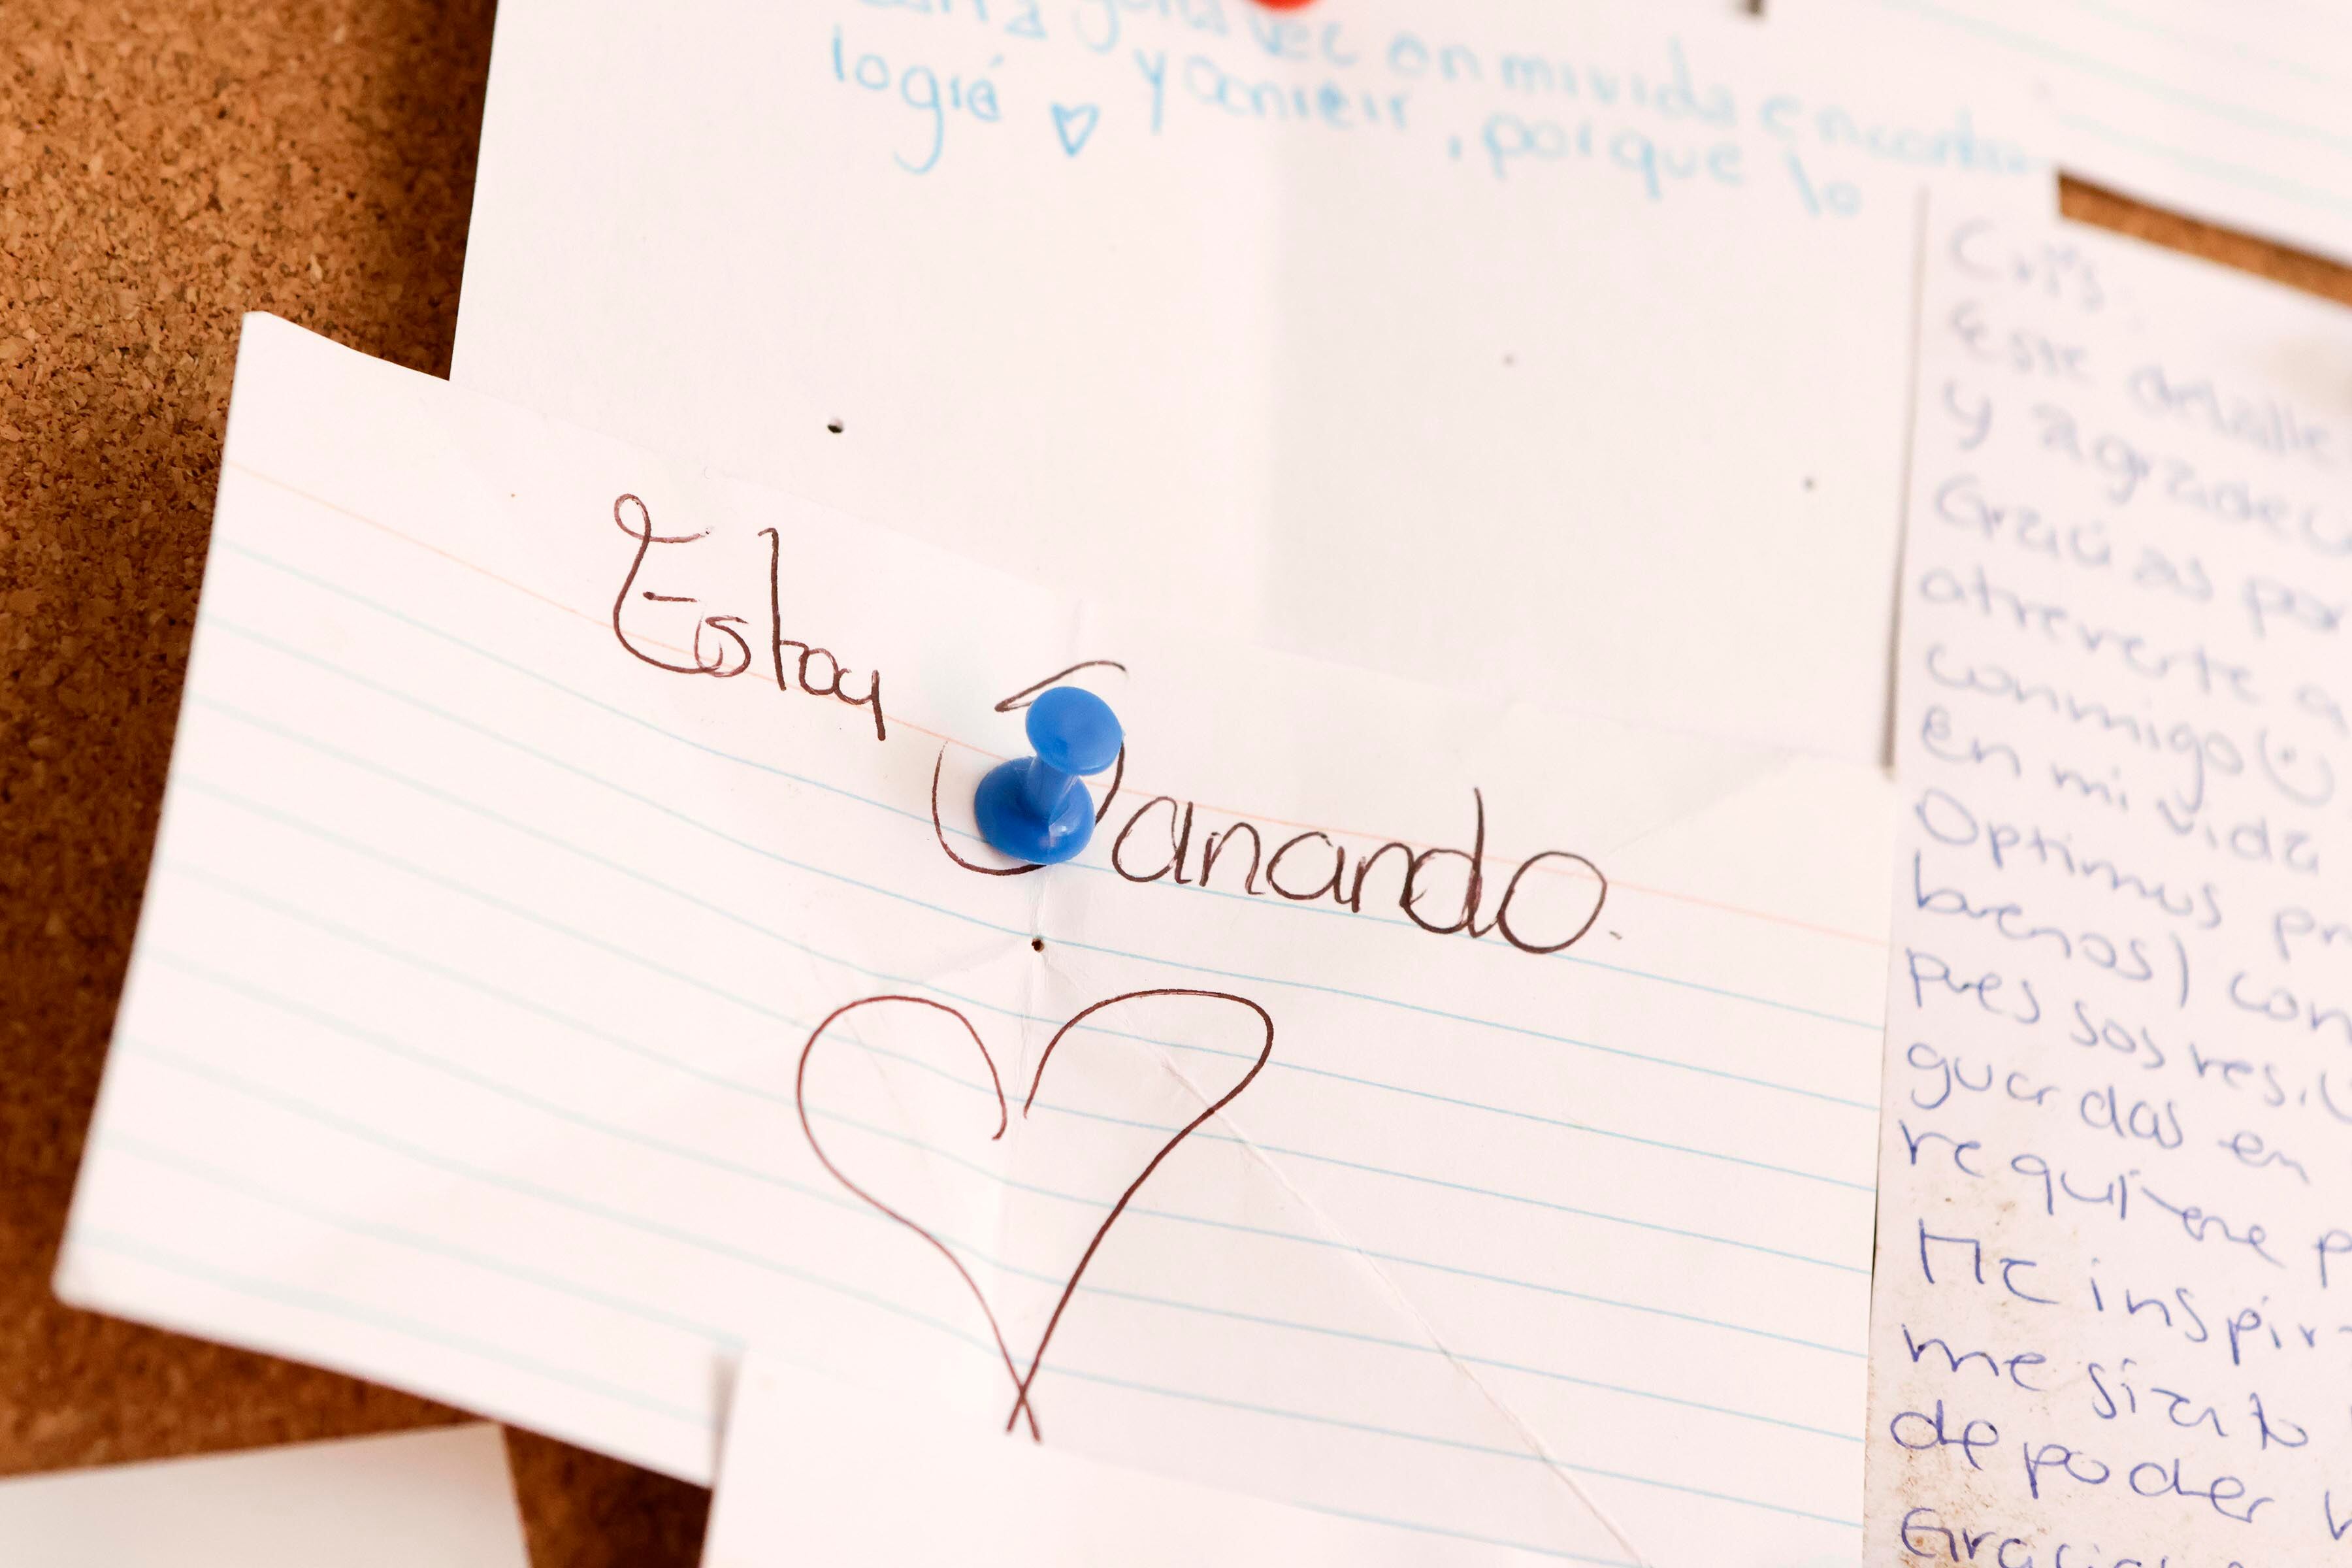 vez en mi vida encontra
logré ♡ y sentir, porque lo
Estoy Sanando.
Cris:
Este detalle
y agradec
Gracias por
atreverte a
conmigo
en mi vida
Optimus
buenos) con
pues sos resi
guardas en
requiere p
Me inspir
me siento
de poder v
Gracia